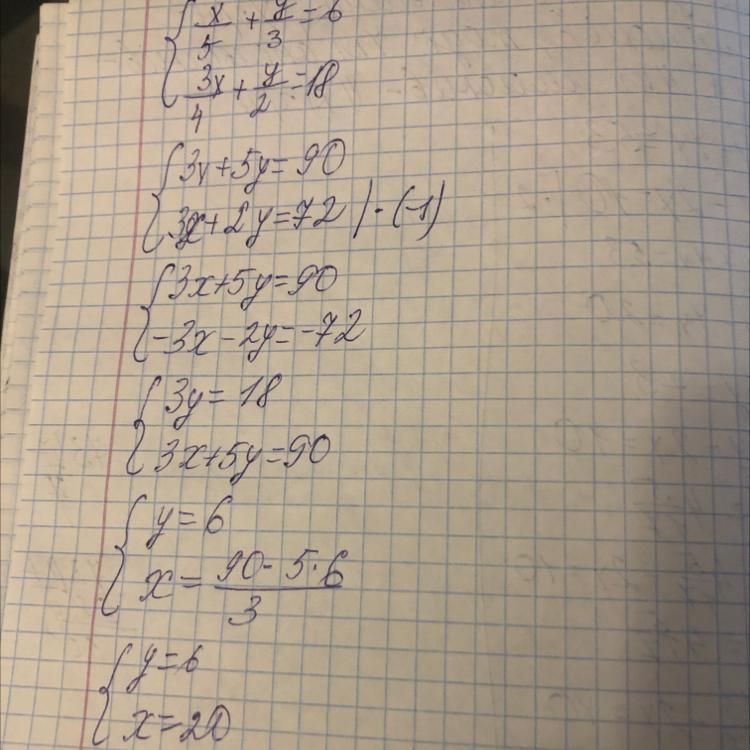 x/5 + y/3 = 6
3x/4 + y/2 = 18
3x+5y=90
3x+2y=72 | ·(-1)
3x+5y=90
-3x-2y=-72
3y=18
3x+5y=90
y=6
x= (90-5·6)/3
y=6
x=20